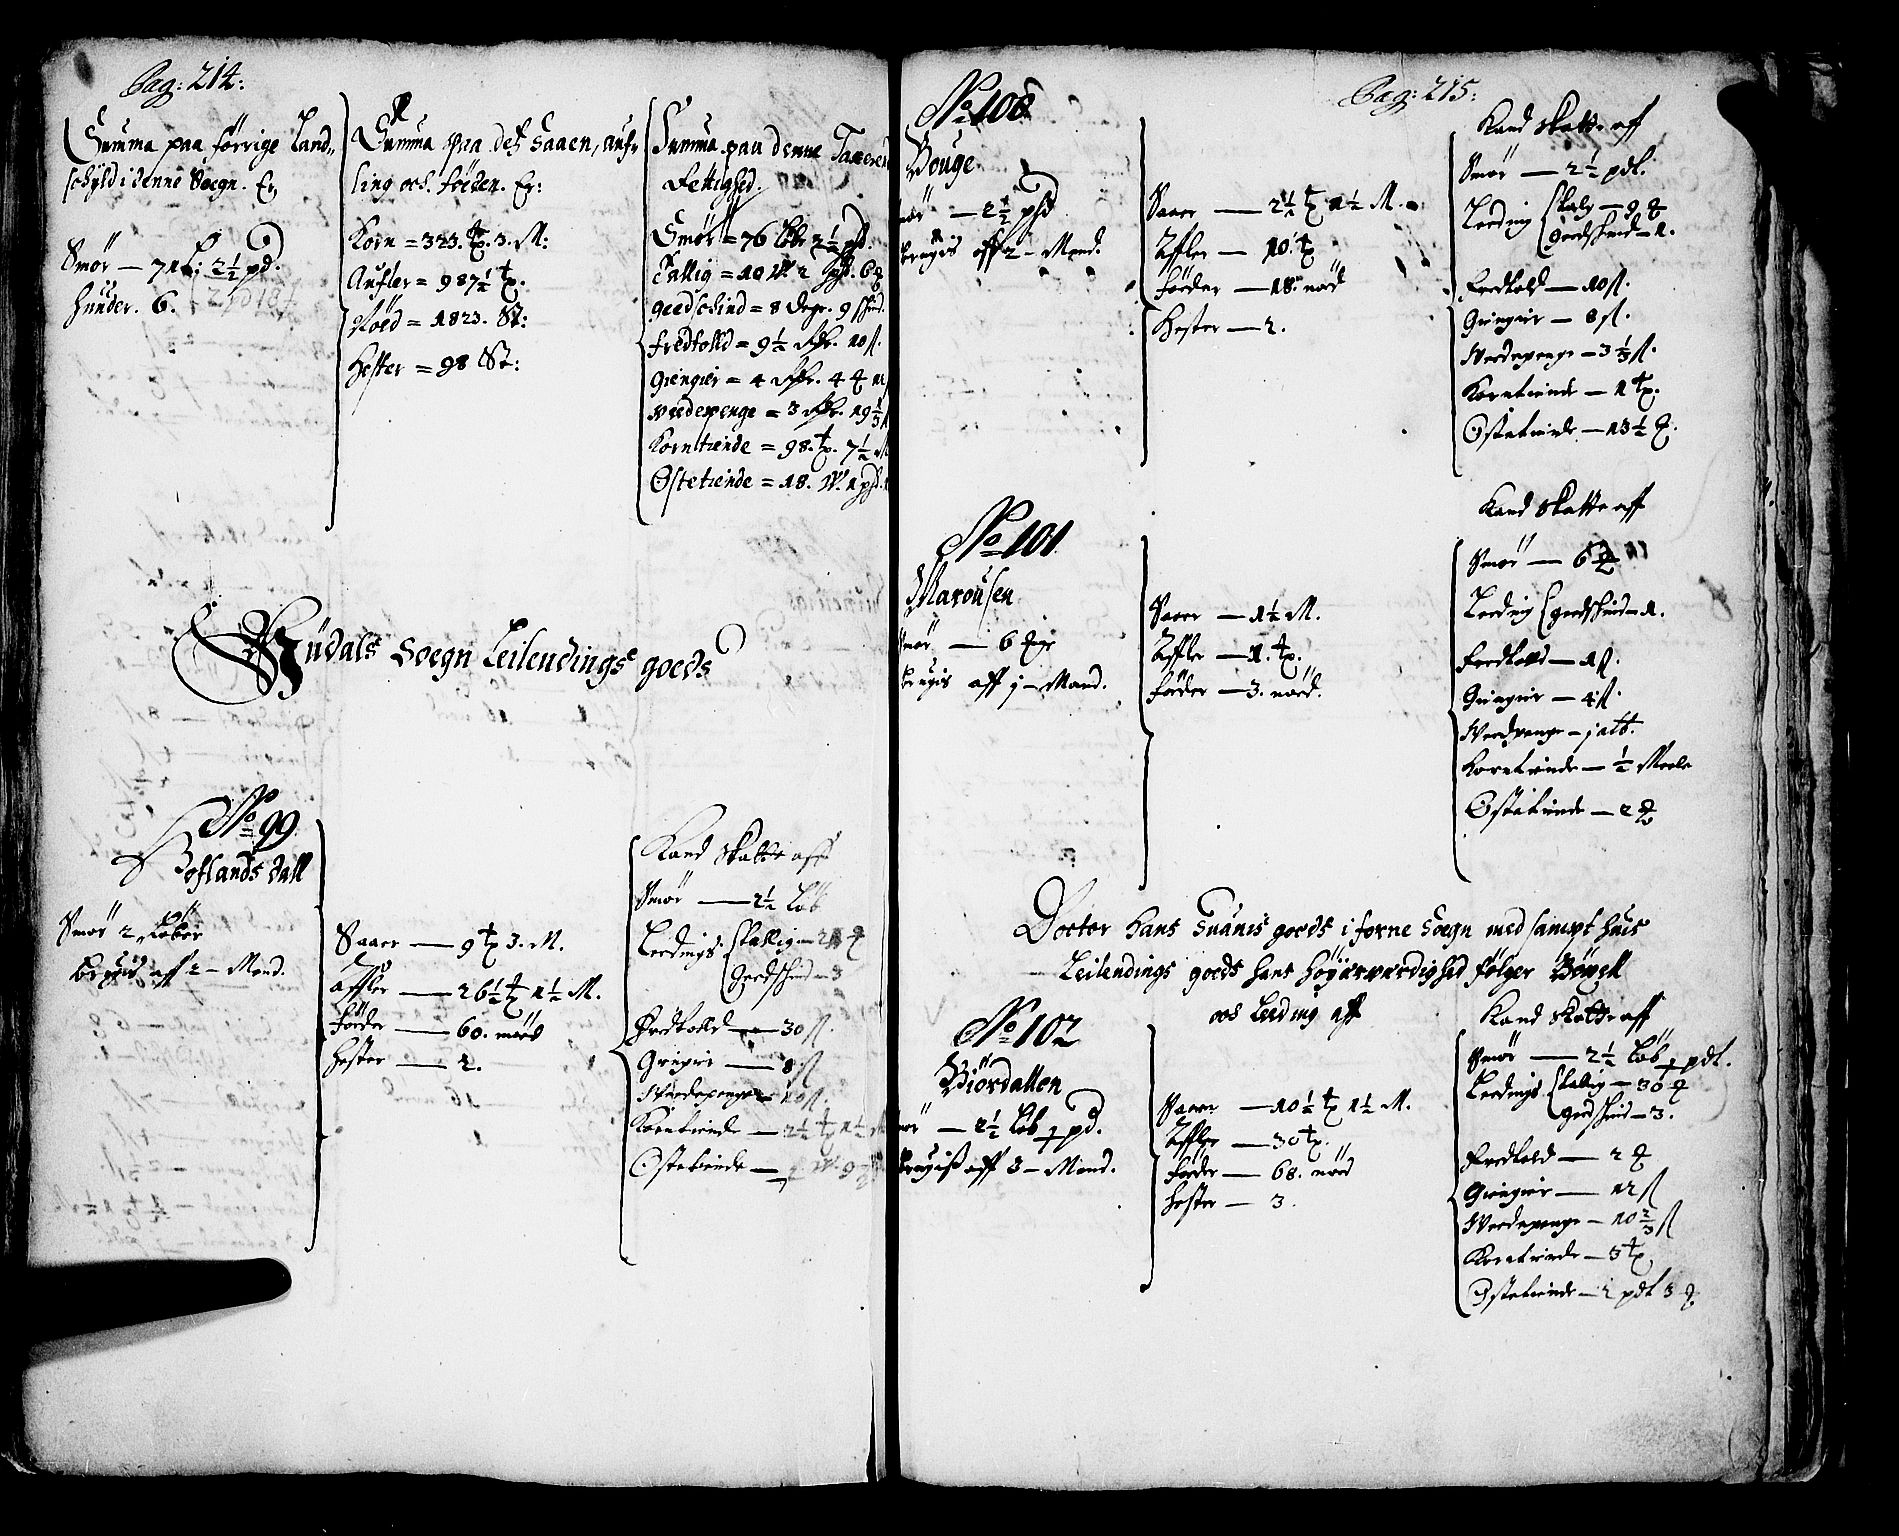 Pag: 214:
Summa paa forrige Land„
schyld i denne Soegn. Er
Smør — 71 L: 2½ pd.
Hunder. 6.
Summa paa des Saaen, auf„
ling och. føeder. Er:
Korn = 323. tp. 3. M:
Aufler = 987½ tp.
Nöed = 1823. St:
Hester = 98 St:
Summa paa denne Taxerede
Rettighed.
Smør = 76 Løb 2½ pd.
Tallig = 10 W. 2 pd. 6
geedschind = 8 degr. 9 schind.
fredtolld = 9½ Rdr. 10 ß.
giengier = 4 Rdr. 4
wredepenge = 3 Rdr. 19⅓
Korntiende = 98. tp. 7½
Ostetiende = 18. W. 1 pd.
Südals Soegn Leilendings goeds
No 99
Hoflands dall
Smør 2 Løber
brugis aff 2 – Mend.
Saaer — 9 tp 3. M.
Affler — 26½ tp 1½ M.
föder — 60. nöed
Hester — 2.
Kand skatte aff
Smør — 2½ Løb
Leedings Skallig —
Geedschind — 3
Fredtolld — 30 ß.
Gengier — 8 ß
Wredepenge — 10 ß.
Korntiende — 2½ tp 1½ M
Ostetiende — W. 9
Pag: 215:
No 100
Bouge
Smør — 2½ pd
brugis aff 2 – Mend.
Saaer — 2½ tp 1½ M.
Affler — 10 tp
föder — 18 nöed
Hester — 2.
Kand skatte aff
Smør — 2½ pd.
Leeding Skalg — 9
geedschind — 1.
Fredtold — 10 ß.
Giengier — 8 ß.
Wredepenge — 3⅓ ß.
Korntiende — 1 tp.
Ostetiende — 13½
No 101
Marousen
Smør — 6
brugis aff j – Mand.
Saaer — 1½ M.
Affler — 1. tp.
föder — 3. nöed.
Kand skatte aff
Smør — 6
Leeding geedschind — 1.
Fredtolld — 1 ß.
Giengier — 4 ß
Wredpenge — j alb.
Korntiende — ½ Meele
Ostetiende — 2
Doctor Hans Suanis goeds i forne Soegn med sampt huis
Leilendings goeds hans Höyærværdighed følger Böxell
och Leeding aff
No 102
Biördallen
Smør — 2½ Løb 1 pd.
brugis aff 3 – Mend.
Saaer — 10½ tp 1½ M.
Affler — 30 tp.
föeder — 68. nöed
Hester — 3.
Kand skatte aff
Smør — 2½ Løb 1 pd.
Leedings Skallig — 30
geedschind — 3.
Fredtold — 2
Giengier — 12 ß
Wredepenge — 10⅔ ß
Korntiende — 3 tp
Ostetiende — 2 pd 3